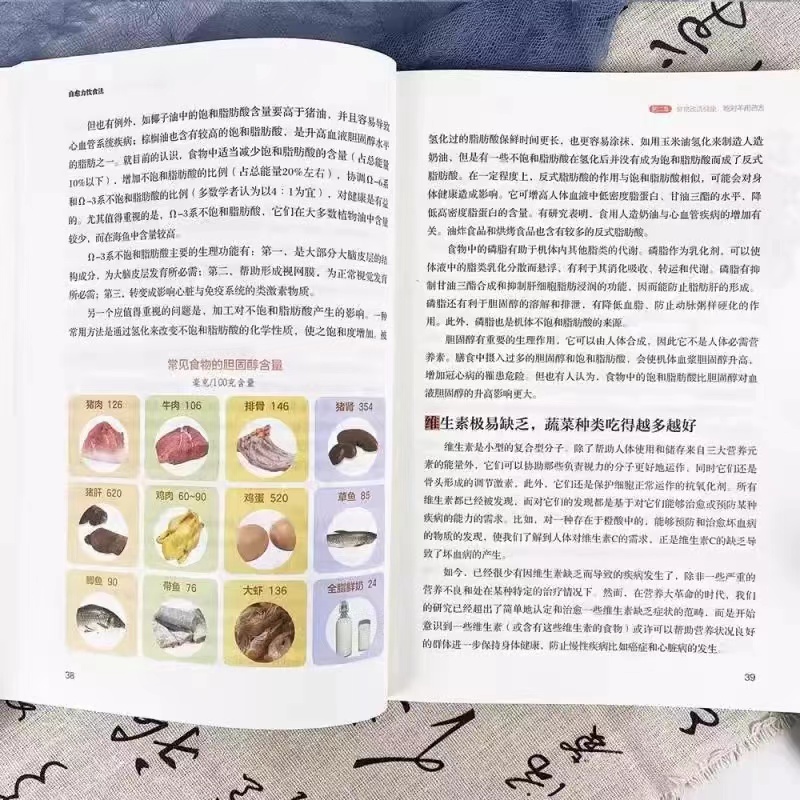 自愈力饮食法
但也有例外，如椰子油中的饱和脂肪酸含量要高于猪油，并且容易导致
心血管系统疾病；棕榈油也含有较高的饱和脂肪酸，是升高血液胆固醇水平
的脂肪之一。就目前的认识，食物中适当减少饱和脂肪酸的含量（占总能量
10%以下），增加不饱和脂肪酸的比例（占总能量20%左右），协调Ω-6系
和Ω-3系不饱和脂肪酸的比例（多数学者认为以4：1为宜），对健康是有益
的。尤其值得重视的是，Ω-3系不饱和脂肪酸，它们在大多数植物油中含量
较少，而在海鱼中含量较高。
Ω-3系不饱和脂肪酸主要的生理功能有：第一，是大部分大脑皮层的结
构成分，为大脑皮层发育所必需；第二，帮助形成视网膜，为正常视觉发育
所必需；第三，转变成影响心脏与免疫系统的类激素物质。
另一个应值得重视的问题是，加工对不饱和脂肪酸产生的影响。一种
常用方法是通过氢化来改变不饱和脂肪酸的化学性质，使之饱和度增加。被
常见食物的胆固醇含量
毫克/100克含量
猪肉 126
牛肉 106
排骨 146
猪肾 354
猪肝 620
鸡肉 60~90
鸡蛋 520
草鱼 85
鲫鱼 90
带鱼 76
大虾 136
全脂鲜奶 24
38
氢化过的脂肪酸保鲜时间更长，也更容易涂抹，如用玉米油氢化来制造人造
奶油，但是有一些不饱和脂肪酸在氢化后并没有成为饱和脂肪酸而成了反式
脂肪酸。在一定程度上，反式脂肪酸的作用与饱和脂肪酸相似，可能会对身
体健康造成影响。它可增高人体血液中低密度脂蛋白、甘油三酯的水平，降
低高密度脂蛋白的含量。有研究表明，食用人造奶油与心血管疾病的增加有
关。油炸食品和烘烤食品也含有较多的反式脂肪酸。
食物中的磷脂有助于机体内其他脂类的代谢。磷脂作为乳化剂，可以使
体液中的脂类乳化分散而悬浮，有利于其消化吸收、转运和代谢。磷脂有抑
制甘油三酯合成和抑制肝细胞脂肪浸润的功能，因而能防止脂肪肝的形成。
磷脂还有利于胆固醇的溶解和排泄，有降低血脂、防止动脉粥样硬化的作
用。此外，磷脂也是机体不饱和脂肪酸的来源。
胆固醇有重要的生理作用，它可以由人体合成，因此它不是人体必需营
养素。膳食中摄入过多的胆固醇和饱和脂肪酸，会使机体血浆胆固醇升高，
增加冠心病的罹患危险。但也有人认为，食物中的饱和脂肪酸比胆固醇对血
液胆固醇的升高影响更大。
维生素极易缺乏，蔬菜种类吃得越多越好
维生素是小型的复合型分子。除了帮助人体使用和储存来自三大营养元
素的能量外，它们可以协助那些负责视力的分子更好地运作，同时它们还是
骨头形成的调节激素，此外，它们还是保护细胞正常运作的抗氧化剂。所有
维生素都已经被发现，而对它们的发现都是基于对它们能够治愈或预防某种
疾病的能力的需求。比如，对一种存在于橙酸中的，能够预防和治愈坏血病
的物质的发现，使我们了解到人体对维生素C的需求，正是维生素C的缺乏导
致了坏血病的产生。
如今，已经很少有因维生素缺乏而导致的疾病发生了，除非一些严重的
营养不良和处在某种特定的治疗情况下。然而，在营养大革命的时代，我们
的研究已经超出了简单地认定和治愈一些维生素缺乏症状的范畴，而是开始
意识到一些维生素（或含有这些维生素的食物）或许可以帮助营养状况良好
的群体进一步保持身体健康，防止慢性疾病比如癌症和心脏病的发生。
39